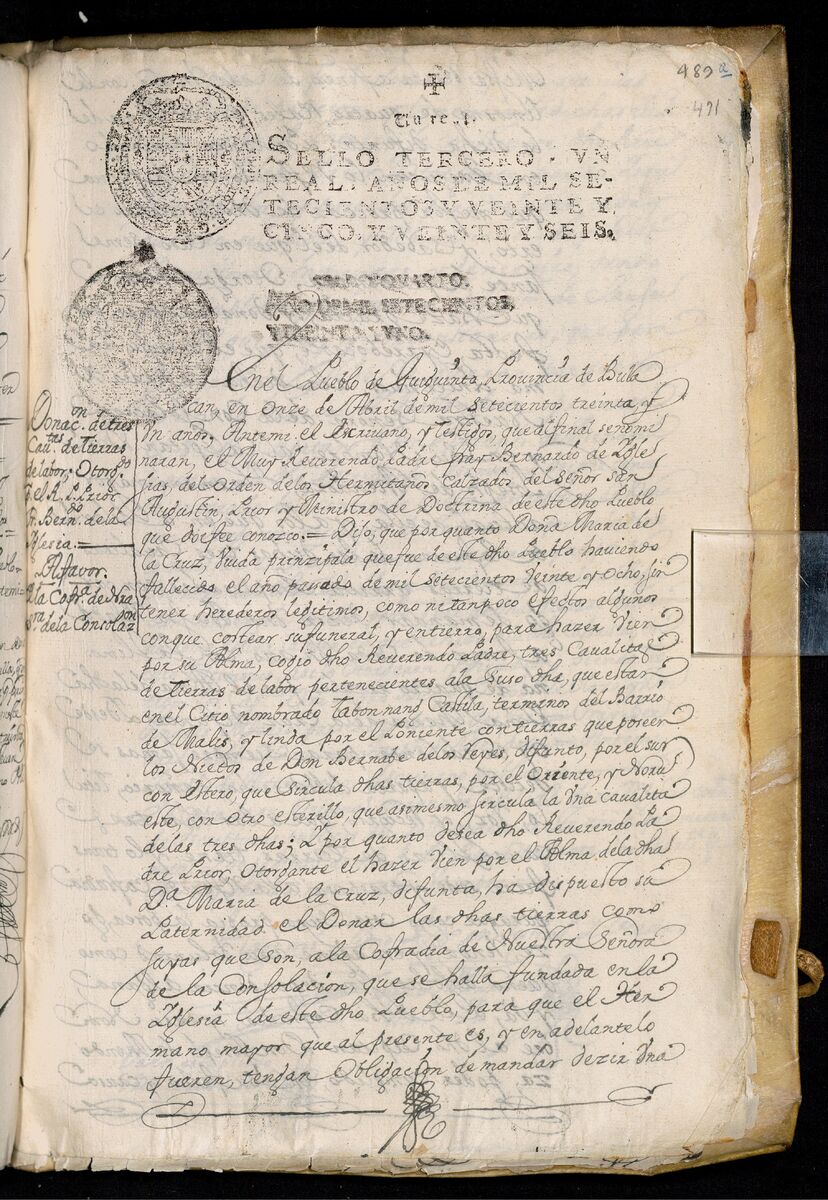 489 a
491
Un real.
SELLO TERCERO, VN
REAL, AÑOS DE MIL SE-
TECIENTOS Y VEINTE Y
CINCO, Y VEINTE Y SEIS.
SELLO QVARTO,
AÑO DE MIL SETECIENTOS,
Y TREINTAIVNO.
Donac.on de tres
Cau.tas de Tierras
de labor, Otorg.do
p.r el R. P. Prior
Fr. Bern.do de la
Yglesia.
A favor.
D la Cofr.a de Nra
Sra de la Consolaz.on
Enel Pueblo de Guiguinta, Provincia de Bula
can, en onze de Abril de mil setecientos treinta, y
Un años, Antemi el Escrivano, y testigos, que al final senomi
naran, el Muy Reverendo Padre fray Bernardo de Ygle
sias, del orden de los Hermitaños Calzados del Señor san
Augustin, Prior y Ministro de Doctrina de este dho Pueblo
que doi fee conozco. = Dijo, que por quanto Doña Maria de
la Cruz, Viuda principala que fue de este dho Pueblo haviendo
fallecido el año pasado de mil setecientos Veinte y Ocho, sin
tener herederos legitimos, como ni tanpoco efectos algunos
conque costear su funeral, y entierro, para hazer Vien
por su Alma, cogio dho Reverendo Padre, tres Cavalitas
de Tierras de labor pertenecientes ala suso dha, que estan
enel Citio nombrado tabonnang Castila, terminos del Barrio
de Malis, y linda por el Poniente con tierras que poseen
los Nietos de Don Bernabe delos Reyes, difunto, por el sur
con Estero, que sircula dhas tierras, por el Oriente, y Nord
este, con otro esterillo, que asimesmo sircula la Vna Cavalita
delas tres dhas; Y por quanto desea dho Reverendo Pa
dre Prior, Otorgante el hazer Vien por el Alma dela dha
D.a Maria de la Cruz, difunta, ha dispuesto su
Paternidad el Donar las dhas tierras como
suyas que son, ala Cofradia de Nuestra Señora
de la Consolacion, que se halla fundada en la
Yglesia de este dho Pueblo, para que el Her
mano mayor que al presente es, y en adelante lo
fueren, tengan Obligacion de mandar dezir Vna